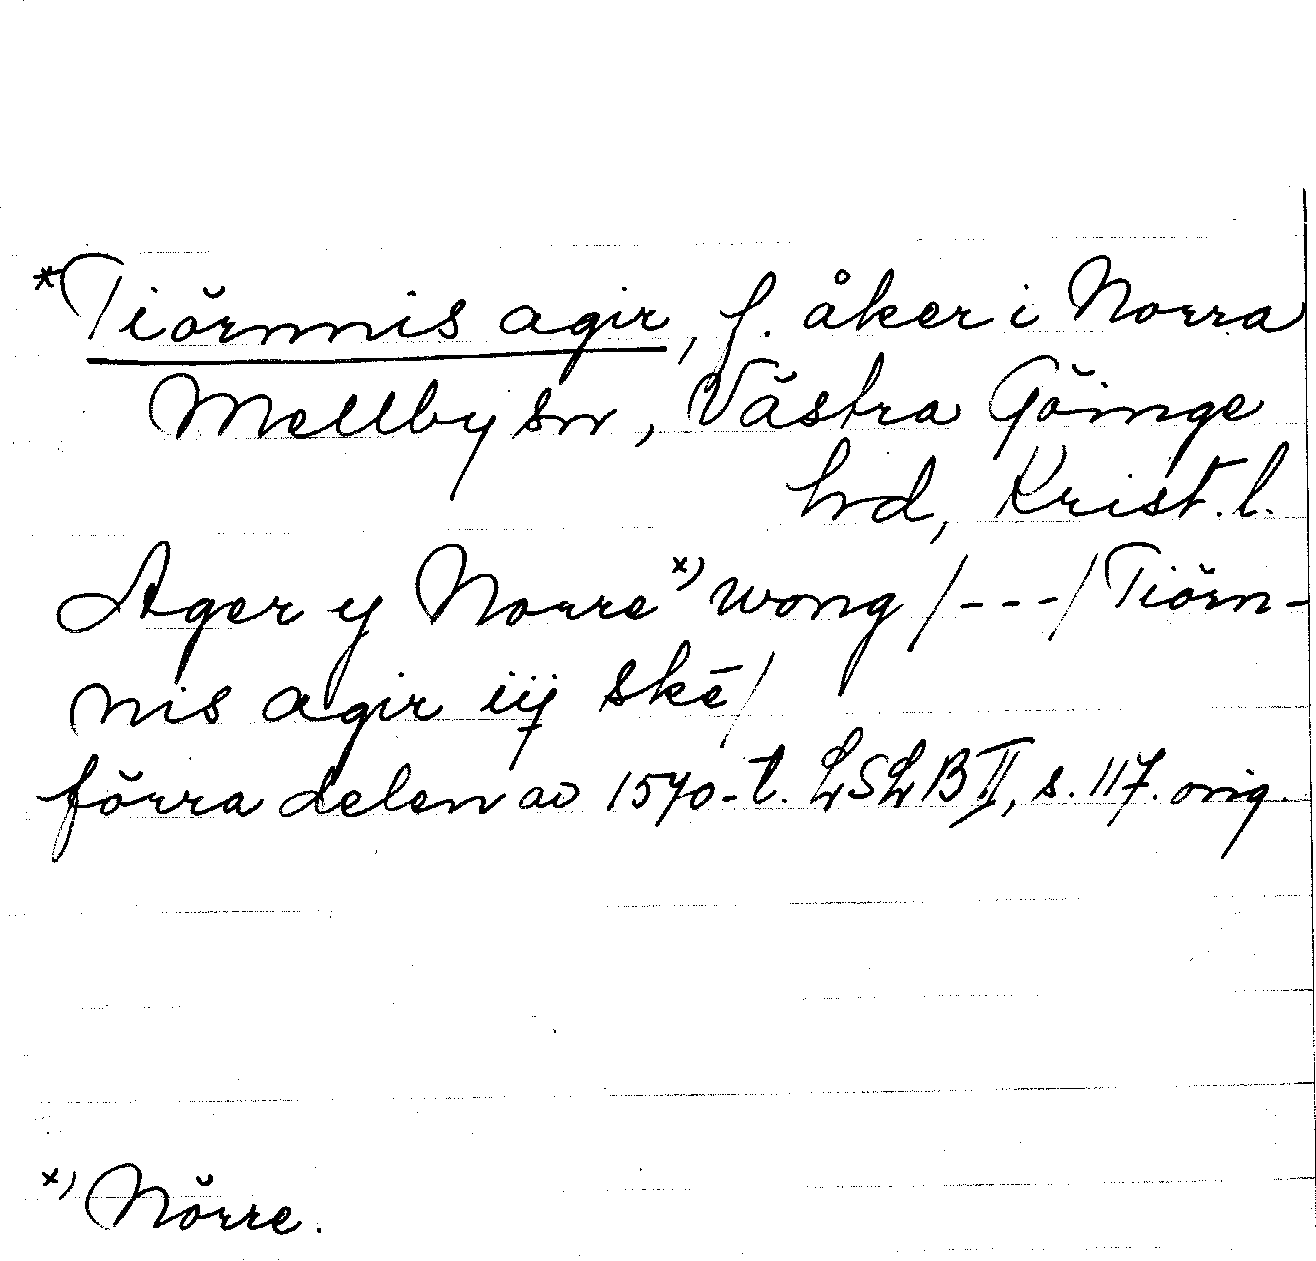 *Tiörnnis agir, f. åker i Norra
Mellby sn, Västra Göinge
hd, Krist. l.
Ager y Norre x) wong /---/ Tiörn-
nis agir iij skē/
förra delen av 1570-t. LSLB II, s. 117. orig.
x) Nörre.